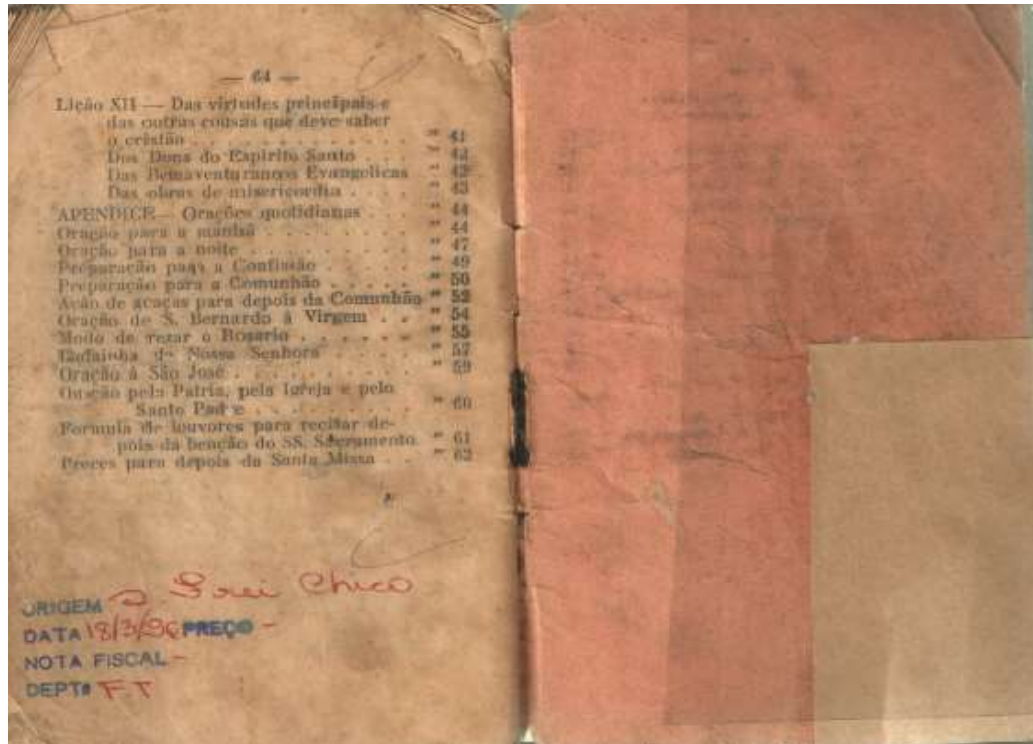 — 64 —
Lição XII — Das virtudes principais e
das outras cousas que deve saber
o cristão . . . . . . . . . . . . " 41
Dos Dons do Espirito Santo . . . " 42
Das Bemaventuranças Evangelicas " 42
Das obras de misericordia . . . . " 43
APENDICE — Orações quotidianas . . . " 44
Oração para a manhã . . . . . . . . " 44
Oração para a noite . . . . . . . . . " 47
Preparação para a Confissão . . . . . " 49
Preparação para a Comunhão . . . . . " 50
Ação de acaças para depois da Comunhão " 52
Oração de S. Bernardo á Virgem . . " 54
Modo de rezar o Rosario . . . . . . " 55
Ladainha de Nossa Senhora . . . . " 57
Oração á São José . . . . . . . . . " 59
Oração pela Patria, pela Igreja e pelo
Santo Padre . . . . . . . . " 60
Formula de louvores para recitar de-
pois da benção do SS. Sacramento " 61
Preces para depois da Santa Missa . . " 62
ORIGEM Frei Chico
DATA 18/3/96 PREÇO -
NOTA FISCAL -
DEPTº FT